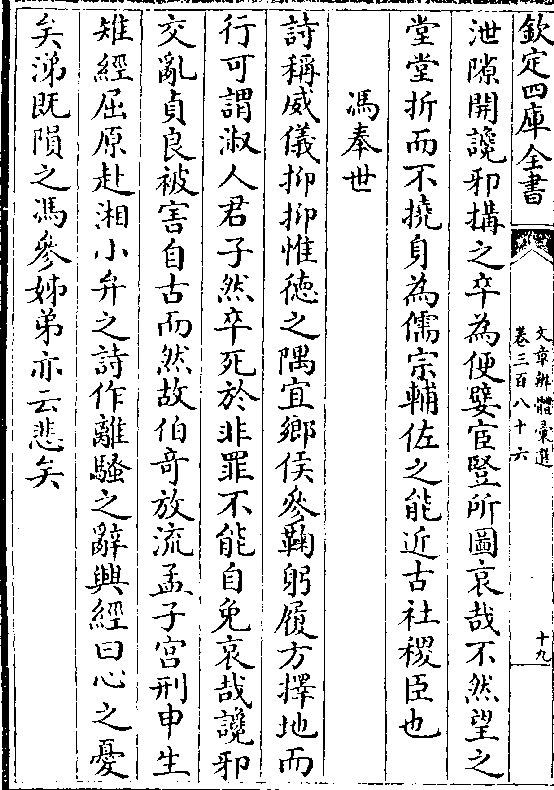 欽定四庫全書
文章辨體彙選
卷三百八十六
十九
泄隙開讒邪搆之卒為便嬖宦豎所圖哀哉不然望之
堂堂折而不撓身為儒宗輔佐之能近古社稷臣也
馮奉世
詩稱威儀抑抑惟徳之隅宜鄉侯參鞠躬履方擇地而
行可謂淑人君子然卒死於非罪不能自免哀哉讒邪
交亂貞良被害自古而然故伯奇放流孟子宫刑申生
雉經屈原赴湘小弁之詩作離騷之辭興經曰心之憂
矣涕既隕之馮參姊弟亦云悲矣